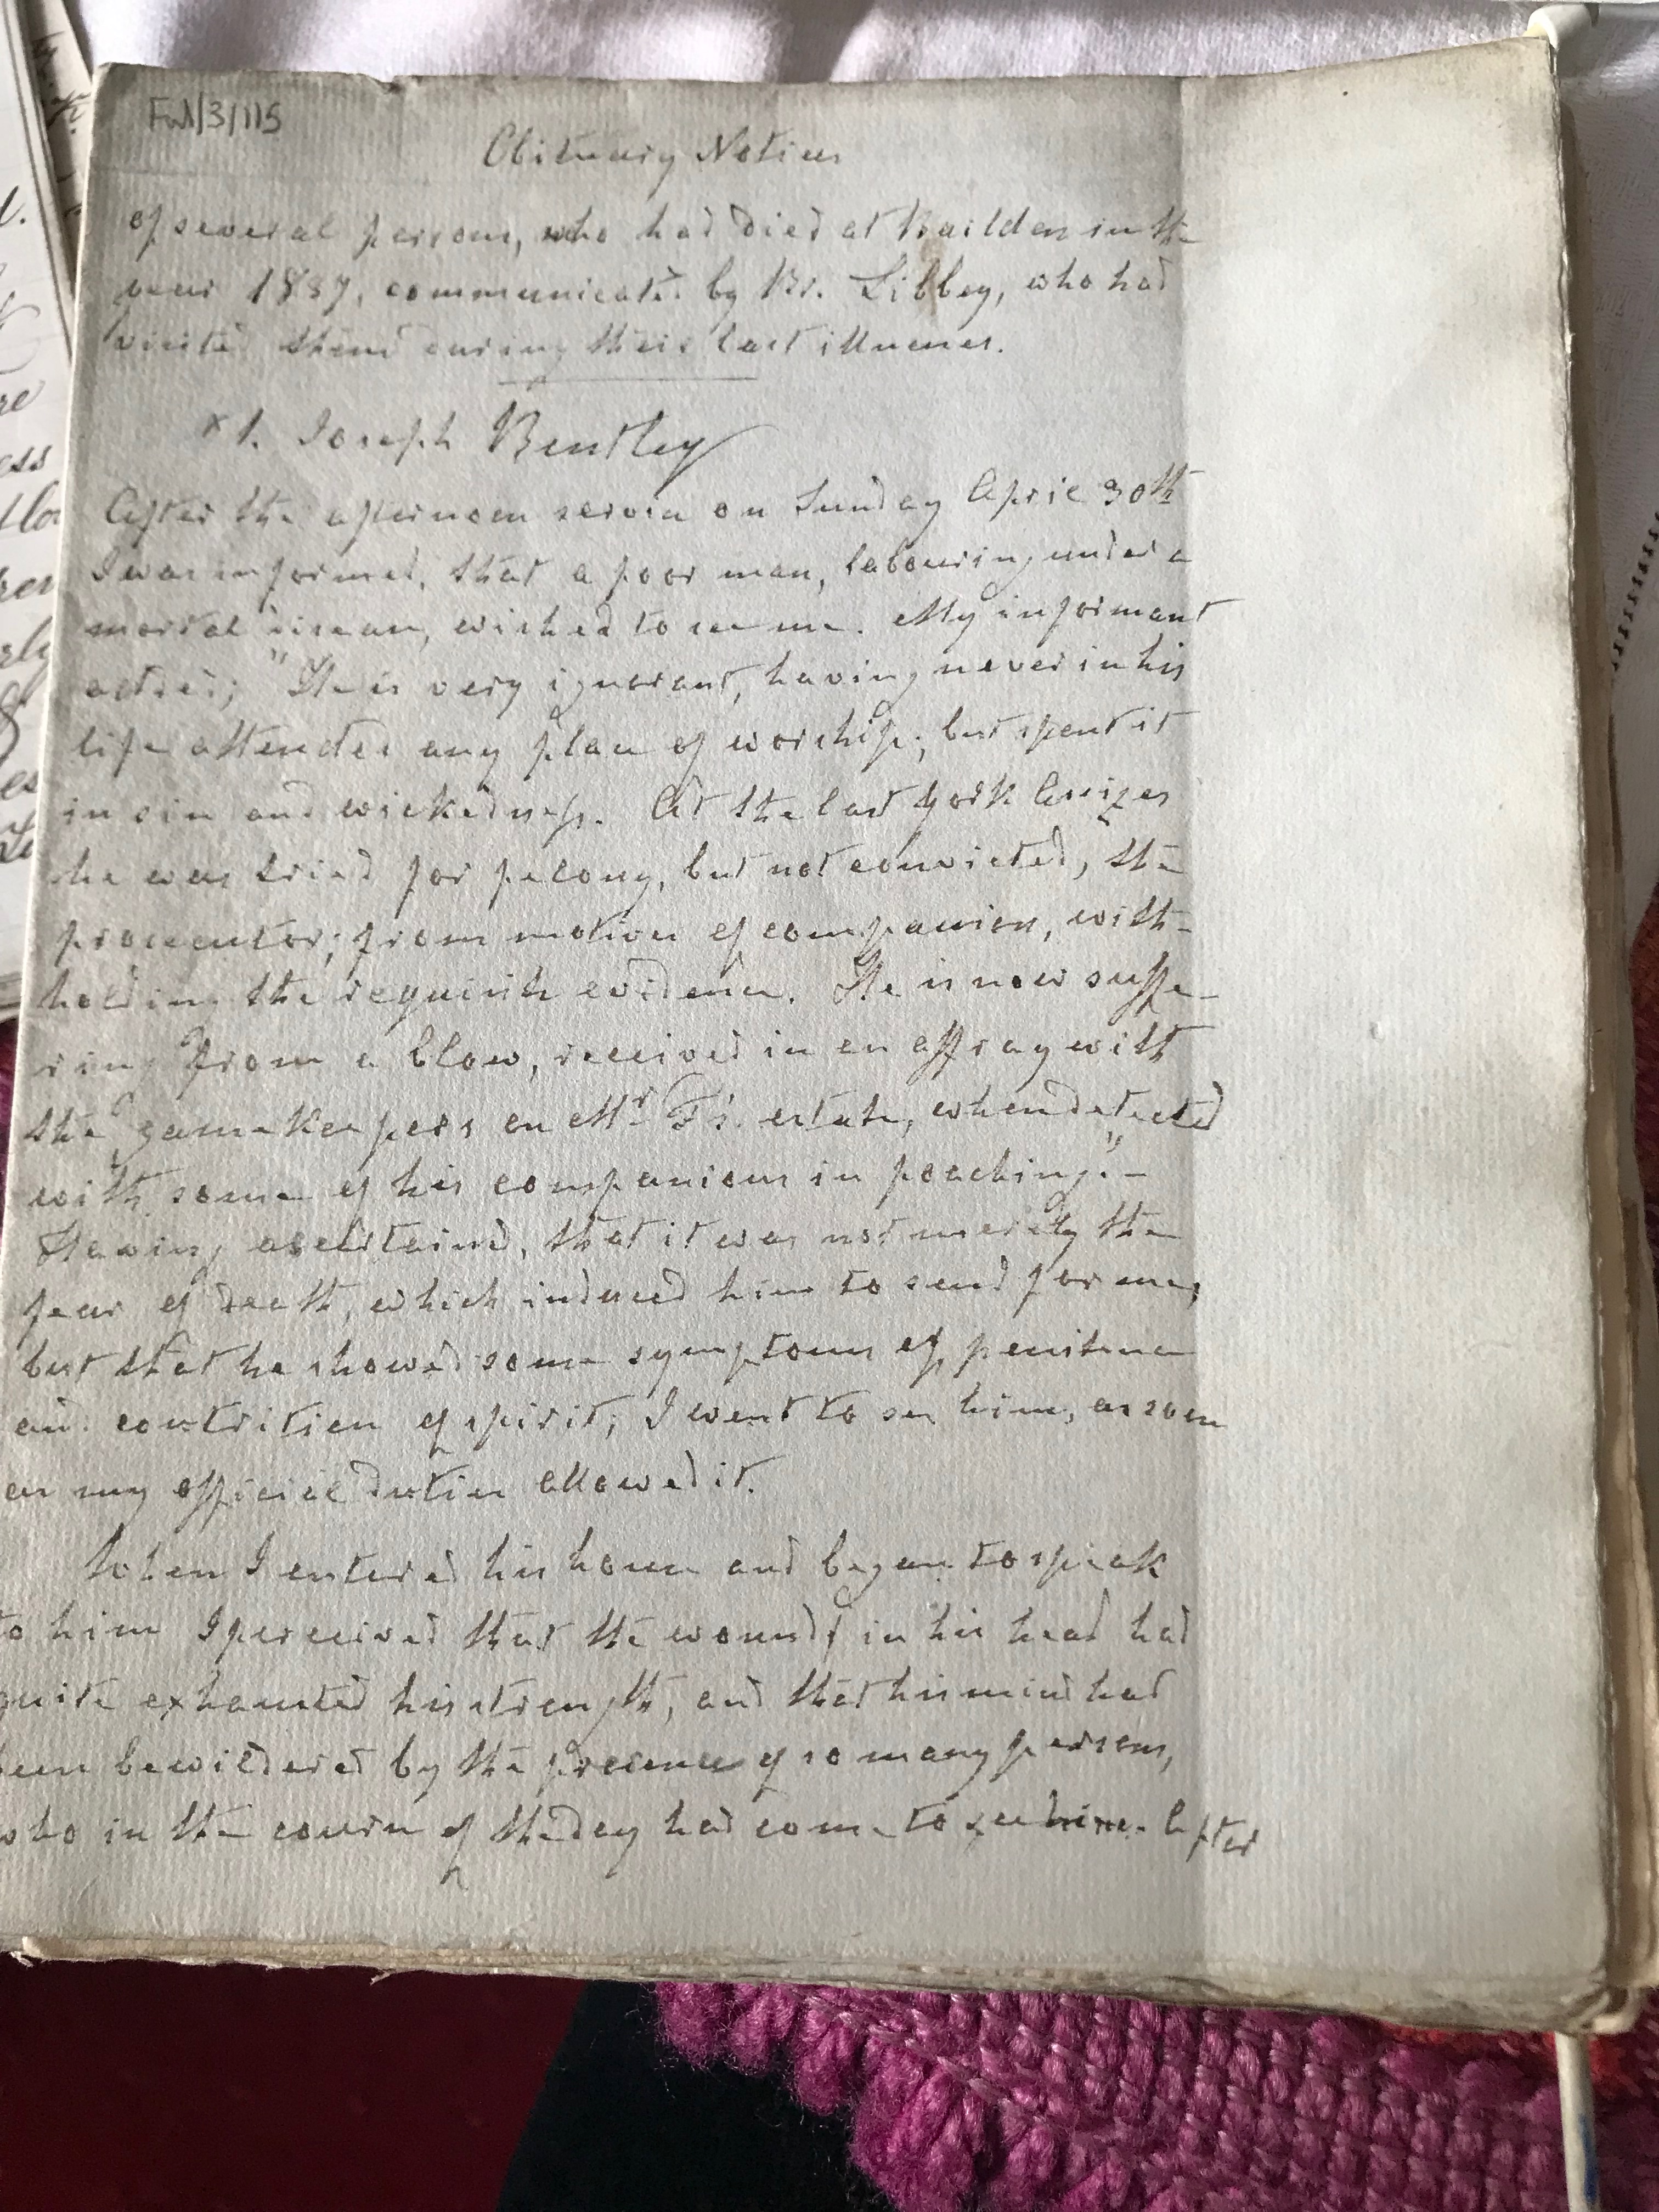 Ful/3/115
Obituary Notices
of several persons, who had died at Baildon in the
year 1837, communicated by Br. Libbey, who had
visited them during their last illnesses.
x 1. Joseph Bentley
After the afternoon service on Sunday April 30th
I was informed, that a poor man, labouring under a
mortal disease, wished to see me. My informant
added; "He is very ignorant, having never in his
life attended any place of worship; but spent it
in sin and wickedness. At the last York Assizes
he was tried for felony, but not convicted, the
prosecutor; from motives of compassion, with-
holding the requisite evidence. He is now suffe-
ring from a blow, received in an affray with
the gamekeepers on Mr F's. estate, when detected
with some of his companions in poaching." –
Having ascertained, that it was not merely the
fear of death, which induced him to send for me,
but that he showed some symptoms of penitence
and contrition of spirit; I went to see him, as soon
as my official duties allowed it.
When I entered his house and began to speak
to him I perceived that the wounds in his head had
quite exhausted his strength, and that his mind had
been bewildered by the presence of so many persons,
who in the course of the day had come to see him. After